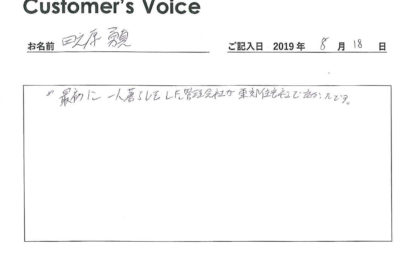 Customer's Voice
お名前 田之原 勇
ご記入日 2019年 8 月 18 日
最初に一人暮らしをした管理会社が東京住宅社で良かったです。